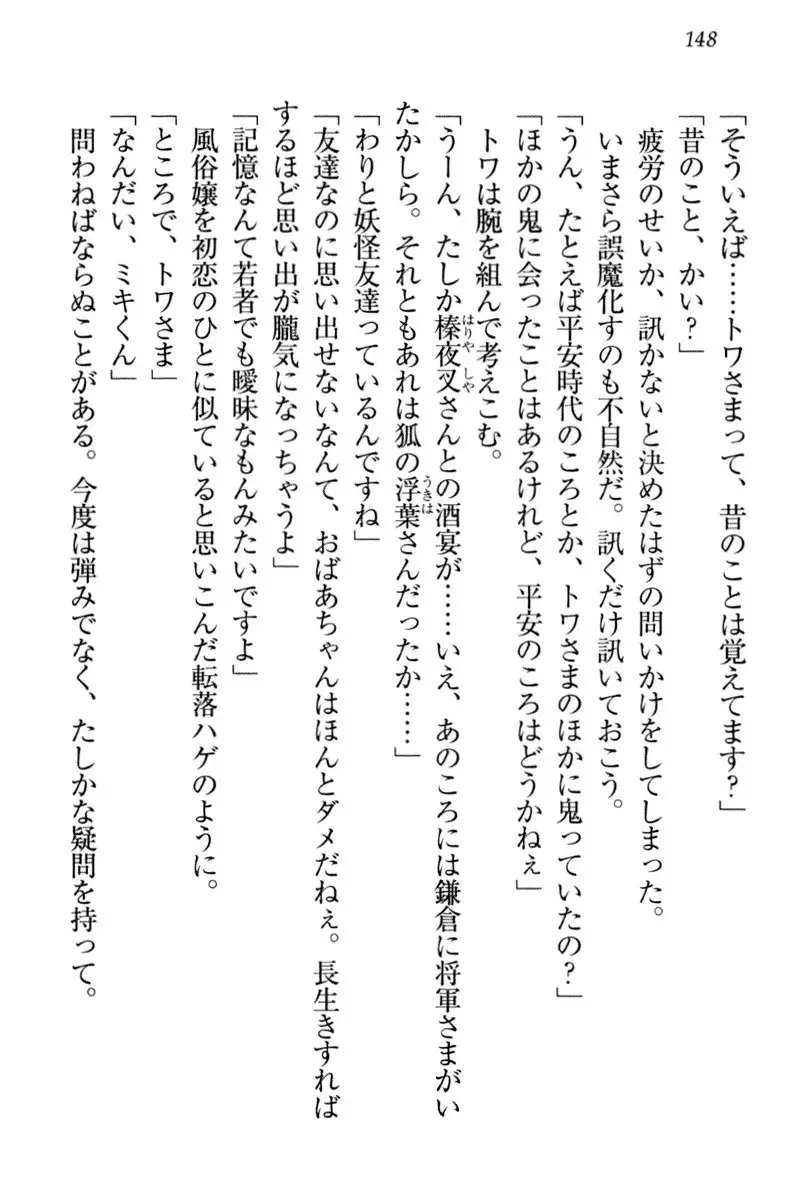 148
「そういえば……トワさまって、昔のことは覚えてます？」
「昔のこと、かい？」
疲労のせいか、訊かないと決めたはずの問いかけをしてしまった。
いまさら誤魔化すのも不自然だ。訊くだけ訊いておこう。
「うん、たとえば平安時代のころとか、トワさまのほかに鬼っていたの？」
「ほかの鬼に会ったことはあるけれど、平安のころはどうかねぇ」
トワは腕を組んで考えこむ。
「うーん、たしか榛夜叉さんとの酒宴が……いえ、あのころには鎌倉に将軍さまがい
たかしら。それともあれは狐の浮葉さんだったか……」
「わりと妖怪友達っているんですね」
「友達なのに思い出せないなんて、おばあちゃんはほんとダメだねぇ。長生きすれば
するほど思い出が朧気になっちゃうよ」
「記憶なんて若者でも曖昧なもんみたいですよ」
風俗嬢を初恋のひとに似ていると思いこんだ転落ハゲのように。
「ところで、トワさま」
「なんだい、ミキくん」
問わねばならぬことがある。今度は弾みでなく、たしかな疑問を持って。